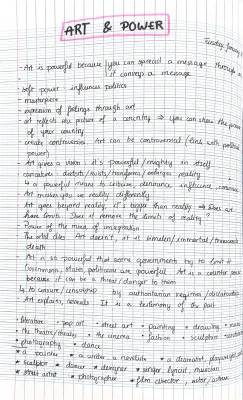 ART & POWER
Tuesday
- Art is powerful because you can spread a message through
it convey a message
- Soft power influences politics
- masterpiece
- expression of feelings through art
- art reflects the picture of a country ⇒ you can show the
of your country
- create controversies. Art can be controversial (links with
power)
- Art gives a vision it's powerful / mighty in itself
- caricatures distorts / twists / transforms / enlarges reality
↳ a powerful means to criticize, denounce, influence, convince
- Art makes you see reality differently
- Art goes beyond reality it's bigger than reality ⇒ Does art
have limits. Does it remove the limits of reality?
- Power of the mind of imagination
The artist dies Art doesn't, it is timeless / immortal / transcends
death
- Art is so powerful that some governments try to limit it
Government, states, politicians are powerful. Art is a counter power
because it can be a threat / danger to them
↳ to censure / censorship by authoritarian regimes / dictatorships
- Art explains, reveals It is a testimony of the past
• literature • pop art • street art • painting • drawing • music
• the theatre / theatre • the cinema • fashion • sculpture
• photography • dance
* a painter * a writer a novelist * a dramatist, playwright
* sculptor * dancer * designer * singer, lyricist, musician
* street artist * photographer * film director, actor / actress